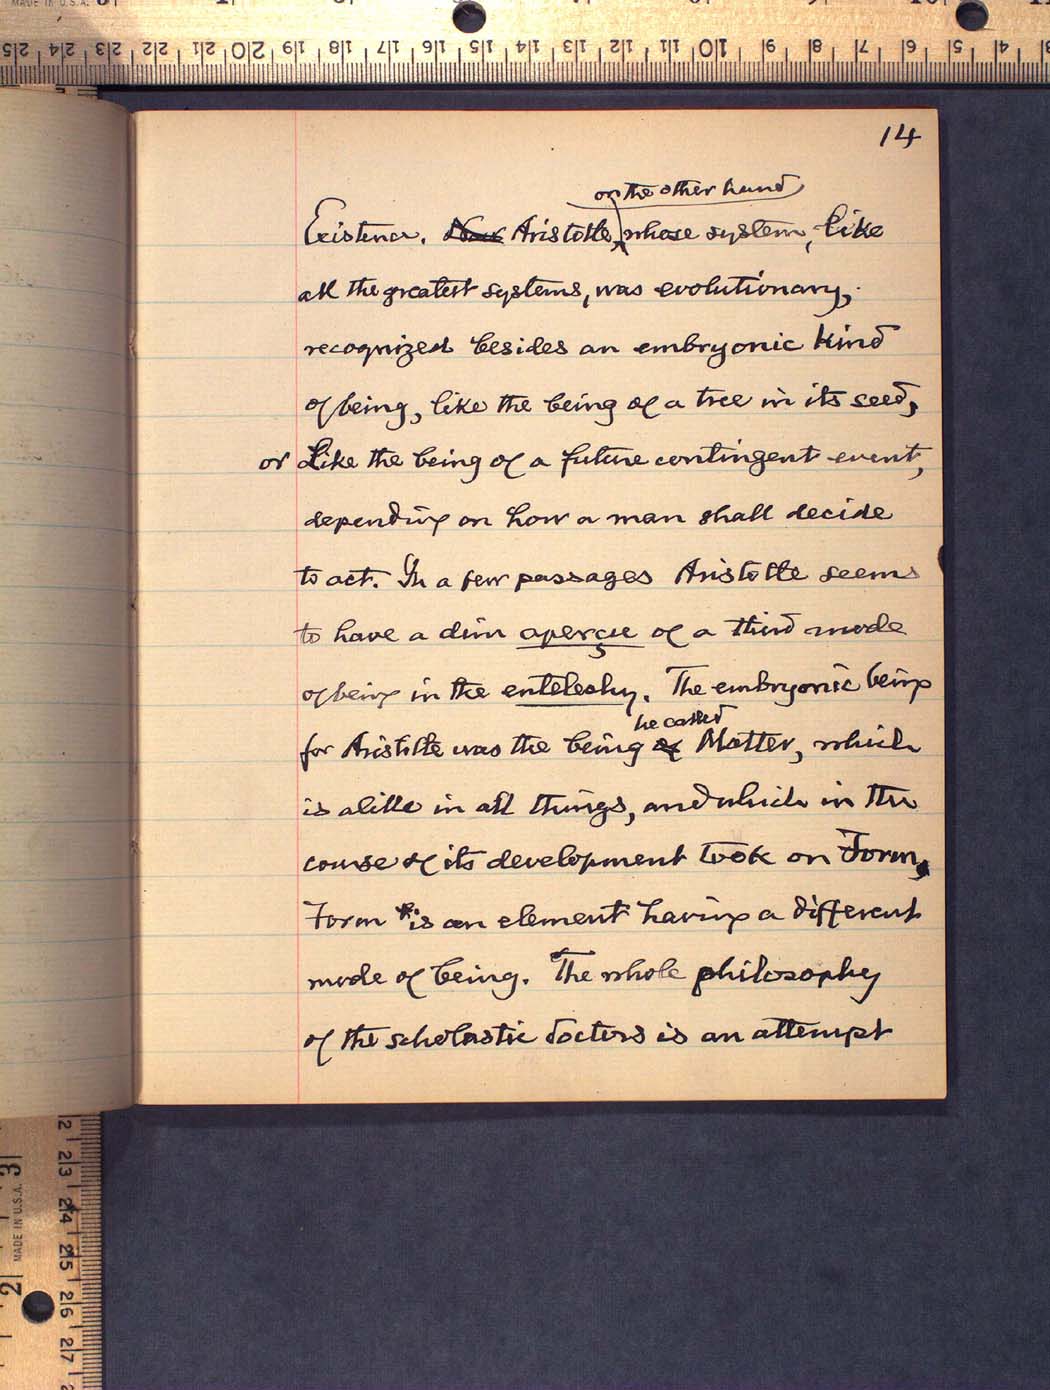 MADE IN U.S.A.
25 24 23 22 21 20 19 18 17 16 15 14 13 12 11 10 9 8 7 6 5 4 3
14
on the other hand
Existence. Now Aristotle, whose system, like
all the greatest systems, was evolutionary,
recognized besides an embryonic kind
of being, like the being of a tree in its seed,
or like the being of a future contingent event,
depending on how a man shall decide
to act. In a few passages Aristotle seems
to have a dim aperçue of a third mode
of being in the entelechy. The embryonic being
he called
for Aristotle was the being of Matter, which
is alike in all things, and which in the
course of its development took on Form,
Form is an element having a different
mode of being. The whole philosophy
of the scholastic doctors is an attempt
2 23 24 25 26 27
3 2
MADE IN U.S.A.